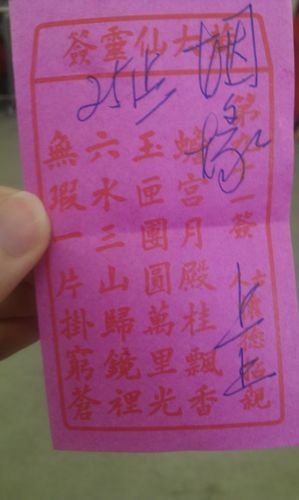 大仙靈簽
一簽
招親
蟾宮月殿桂飄香
玉匣團圓萬里光
六水三山歸鏡裡
無瑕一片掛窮蒼
姻緣
上上